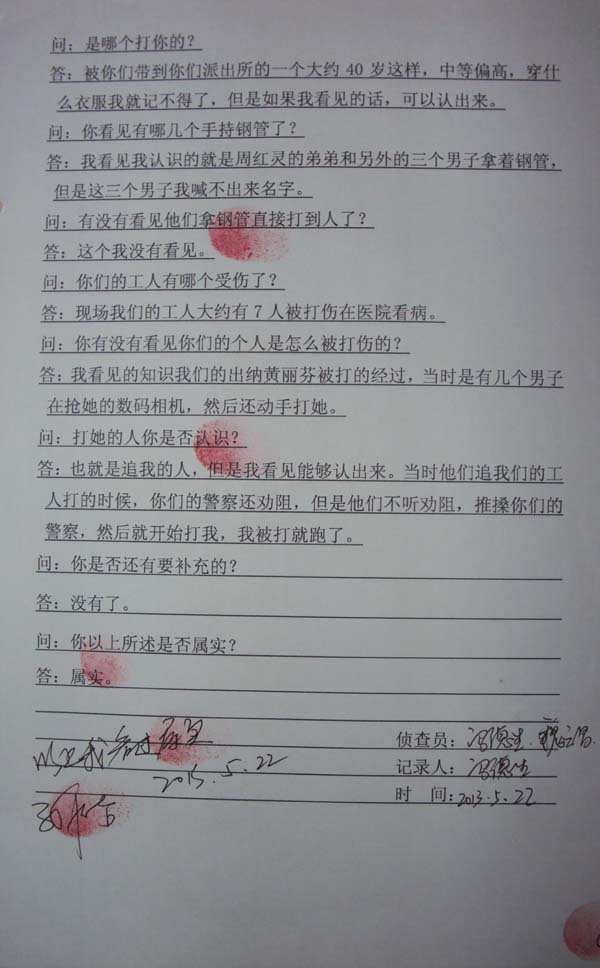 问：是哪个打你的？
答：被你们带到你们派出所的一个大约 40 岁这样，中等偏高，穿什
么衣服我就记不得了，但是如果我看见的话，可以认出来。
问：你看见有哪几个手持钢管了？
答：我看见我认识的就是周红灵的弟弟和另外的三个男子拿着钢管，
但是这三个男子我喊不出来名字。
问：有没有看见他们拿钢管直接打到人了？
答：这个我没有看见。
问：你们的工人有哪个受伤了？
答：现场我们的工人大约有 7 人被打伤在医院看病。
问：你有没有看见你们的个人是怎么被打伤的？
答：我看见的知识我们的出纳黄丽芬被打的经过，当时是有几个男子
在抢她的数码相机，然后还动手打她。
问：打她的人你是否认识？
答：也就是追我的人，但是我看见能够认出来。当时他们追我们的工
人打的时候，你们的警察还劝阻，但是他们不听劝阻，推搡你们的
警察，然后就开始打我，我被打就跑了。
问：你是否还有要补充的？
答：没有了。
问：你以上所述是否属实？
答：属实。
以上我
2013.5.22
侦查员：冯德生
记录人：冯德生
时　间：2013.5.22